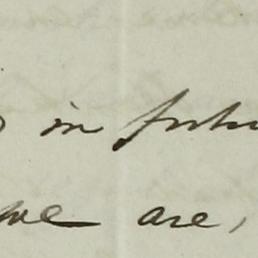 in futu
we are,